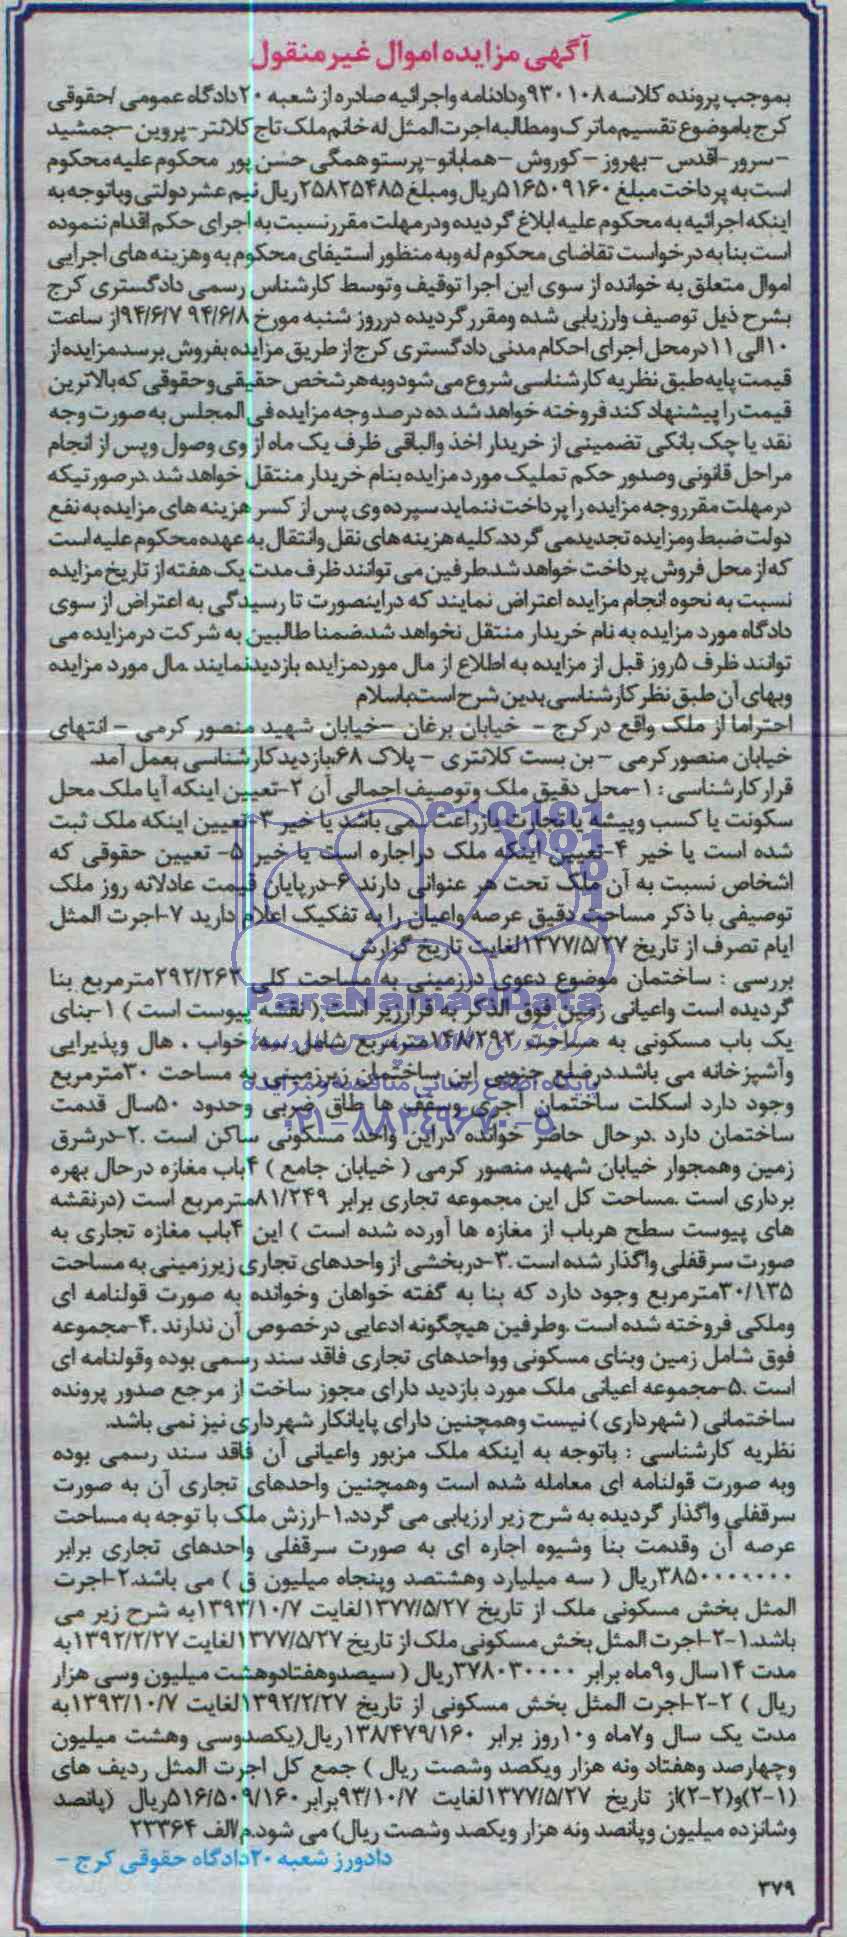 آگهی مزایده اموال غیرمنقول
بموجب پرونده کلاسه ۹۳۰۱۰۸ ودادنامه واجرائیه صادره از شعبه ۲۰ دادگاه عمومی /حقوقی
کرج باموضوع تقسیم ماترک ومطالبه اجرت المثل له خانم ملک تاج کلانتر-پروین-جمشید
-سرور-اقدس -بهروز -کوروش -همابانو-پرستو همگی حسن پور محکوم علیه محکوم
است به پرداخت مبلغ ۵۱۶۵۰۹۱۶۰ریال ومبلغ ۲۵۸۲۵۴۸۵ریال نیم عشر دولتی وباتوجه به
اینکه اجرائیه به محکوم علیه ابلاغ گردیده ودر مهلت مقرر نسبت به اجرای حکم اقدام ننموده
است بنا به درخواست تقاضای محکوم له وبه منظور استیفای محکوم به وهزینه های اجرایی
اموال متعلق به خوانده از سوی این اجرا توقیف وتوسط کارشناس رسمی دادگستری کرج
بشرح ذیل توصیف وارزیابی شده ومقرر گردیده درروز شنبه مورخ ۹۴/۶/۸ ۹۴/۶/۷از ساعت
۱۰الی ۱۱درمحل اجرای احکام مدنی دادگستری کرج از طریق مزایده بفروش برسد.مزایده از
قیمت پایه طبق نظریه کارشناسی شروع می شود وبه هر شخص حقیقی وحقوقی که بالاترین
قیمت را پیشنهاد کند فروخته خواهد شد .ده درصد وجه مزایده فی المجلس به صورت وجه
نقد یا چک بانکی تضمینی از خریدار اخذ والباقی ظرف یک ماه از وی وصول وپس از انجام
مراحل قانونی وصدور حکم تملیک مورد مزایده بنام خریدار منتقل خواهد شد .درصورتیکه
درمهلت مقرروجه مزایده را پرداخت ننماید سپرده وی پس از کسر هزینه های مزایده به نفع
دولت ضبط ومزایده تجدیدمی گردد.کلیه هزینه های نقل وانتقال به عهده محکوم علیه است
که از محل فروش پرداخت خواهد شد.طرفین می توانند ظرف مدت یک هفته از تاریخ مزایده
نسبت به نحوه انجام مزایده اعتراض نمایند که دراینصورت تا رسیدگی به اعتراض از سوی
دادگاه مورد مزایده به نام خریدار منتقل نخواهد شد.ضمنا طالبین به شرکت درمزایده می
توانند ظرف ۵روز قبل از مزایده به اطلاع از مال موردمزایده بازدیدنمایند .مال مورد مزایده
وبهای آن طبق نظر کارشناسی بدین شرح است:باسلام
احتراما از ملک واقع در کرج - خیابان برغان -خیابان شهید منصور کرمی - انتهای
خیابان منصور کرمی - بن بست کلانتری - پلاک ۶۸،بازدید کارشناسی بعمل آمد.
قرار کارشناسی : ۱-محل دقیق ملک وتوصیف اجمالی آن ۲-تعیین اینکه آیا ملک محل
سکونت یا کسب وپیشه یا تجارت یازراعت .می باشد یا خیر ۳-تعیین اینکه ملک ثبت
شده است یا خیر ۴-تعیین اینکه ملک دراجاره است یا خیر ۵- تعیین حقوقی که
اشخاص نسبت به آن ملک تحت هر عنوانی دارند ۶-درپایان قیمت عادلانه روز ملک
توصیفی با ذکر مساحت دقیق عرصه واعیان را به تفکیک اعلام دارید ۷-اجرت المثل
ایام تصرف از تاریخ ۱۳۷۷/۵/۲۷لغایت تاریخ گزارش
بررسی : ساختمان موضوع دعوی درزمینی به مساحت کلی ۲۹۲/۲۶۲مترمربع بنا
گردیده است واعیانی زمین فوق الذکر به قرارزیر است ( نقشه پیوست است ) ۱-بنای
یک باب مسکونی به مساحت ۱۴۸/۲۹۲مترمربع شامل سه خواب ، هال وپذیرایی
وآشپزخانه می باشد.درضلع جنوبی این ساختمان زیرزمینی به مساحت ۳۰مترمربع
وجود دارد اسکلت ساختمان آجری وسقف ها طاق ضربی وحدود ۵۰سال قدمت
ساختمان دارد .درحال حاضر خوانده دراین واحد مسکونی ساکن است .۲-درشرق
زمین وهمجوار خیابان شهید منصور کرمی ( خیابان جامع ) ۴باب مغازه درحال بهره
برداری است .مساحت کل این مجموعه تجاری برابر ۸۱/۲۴۹مترمربع است (درنقشه
های پیوست سطح هرباب از مغازه ها آورده شده است ) این ۴باب مغازه تجاری به
صورت سرقفلی واگذار شده است .۳-دربخشی از واحدهای تجاری زیرزمینی به مساحت
۳۰/۱۳۵مترمربع وجود دارد که بنا به گفته خواهان وخوانده به صورت قولنامه ای
وملکی فروخته شده است .وطرفین هیچگونه ادعایی درخصوص آن ندارند .۴-مجموعه
فوق شامل زمین وبنای مسکونی وواحدهای تجاری فاقد سند رسمی بوده وقولنامه ای
است .۵-مجموعه اعیانی ملک مورد بازدید دارای مجوز ساخت از مرجع صدور پرونده
ساختمانی ( شهرداری ) نیست وهمچنین دارای پایانکار شهرداری نیز نمی باشد.
نظریه کارشناسی : باتوجه به اینکه ملک مزبور واعیانی آن فاقد سند رسمی بوده
وبه صورت قولنامه ای معامله شده است وهمچنین واحدهای تجاری آن به صورت
سرقفلی واگذار گردیده به شرح زیر ارزیابی می گردد.۱-ارزش ملک با توجه به مساحت
عرصه آن وقدمت بنا وشیوه اجاره ای به صورت سرقفلی واحدهای تجاری برابر
۳۸۵۰۰۰۰۰۰۰ریال ( سه میلیارد وهشتصد وپنجاه میلیون ق ) می باشد.۲-اجرت
المثل بخش مسکونی ملک از تاریخ ۱۳۷۷/۵/۲۷لغایت ۱۳۹۳/۱۰/۷به شرح زیر می
باشد.۱-۲-اجرت المثل بخش مسکونی ملک از تاریخ ۱۳۷۷/۵/۲۷لغایت ۱۳۹۲/۲/۲۷به
مدت ۱۴سال و۹ماه برابر ۳۷۸۰۳۰۰۰۰ریال ( سیصدوهفتادوهشت میلیون وسی هزار
ریال ) ۲-۲-اجرت المثل بخش مسکونی از تاریخ ۱۳۹۲/۲/۲۷لغایت ۱۳۹۳/۱۰/۷به
مدت یک سال و۷ماه و۱۰روز برابر ۱۳۸/۴۷۹/۱۶۰ریال(یکصدوسی وهشت میلیون
وچهارصد وهفتاد ونه هزار ویکصد وشصت ریال ) جمع کل اجرت المثل ردیف های
(۱-۲)و(۲-۲)از تاریخ ۱۳۷۷/۵/۲۷لغایت ۹۳/۱۰/۷برابر۵۱۶/۵۰۹/۱۶۰ریال (پانصد
وشانزده میلیون وپانصد ونه هزار ویکصد وشصت ریال) می شود.م/الف ۲۲۳۶۴
دادورز شعبه ۲۰دادگاه حقوقی کرج -
۳۷۹
ParsNamadData
پایگاه اطلاع رسانی مناقصه و مزایده
۰۲۱-۸۸۳۴۹۶۷۰-۵